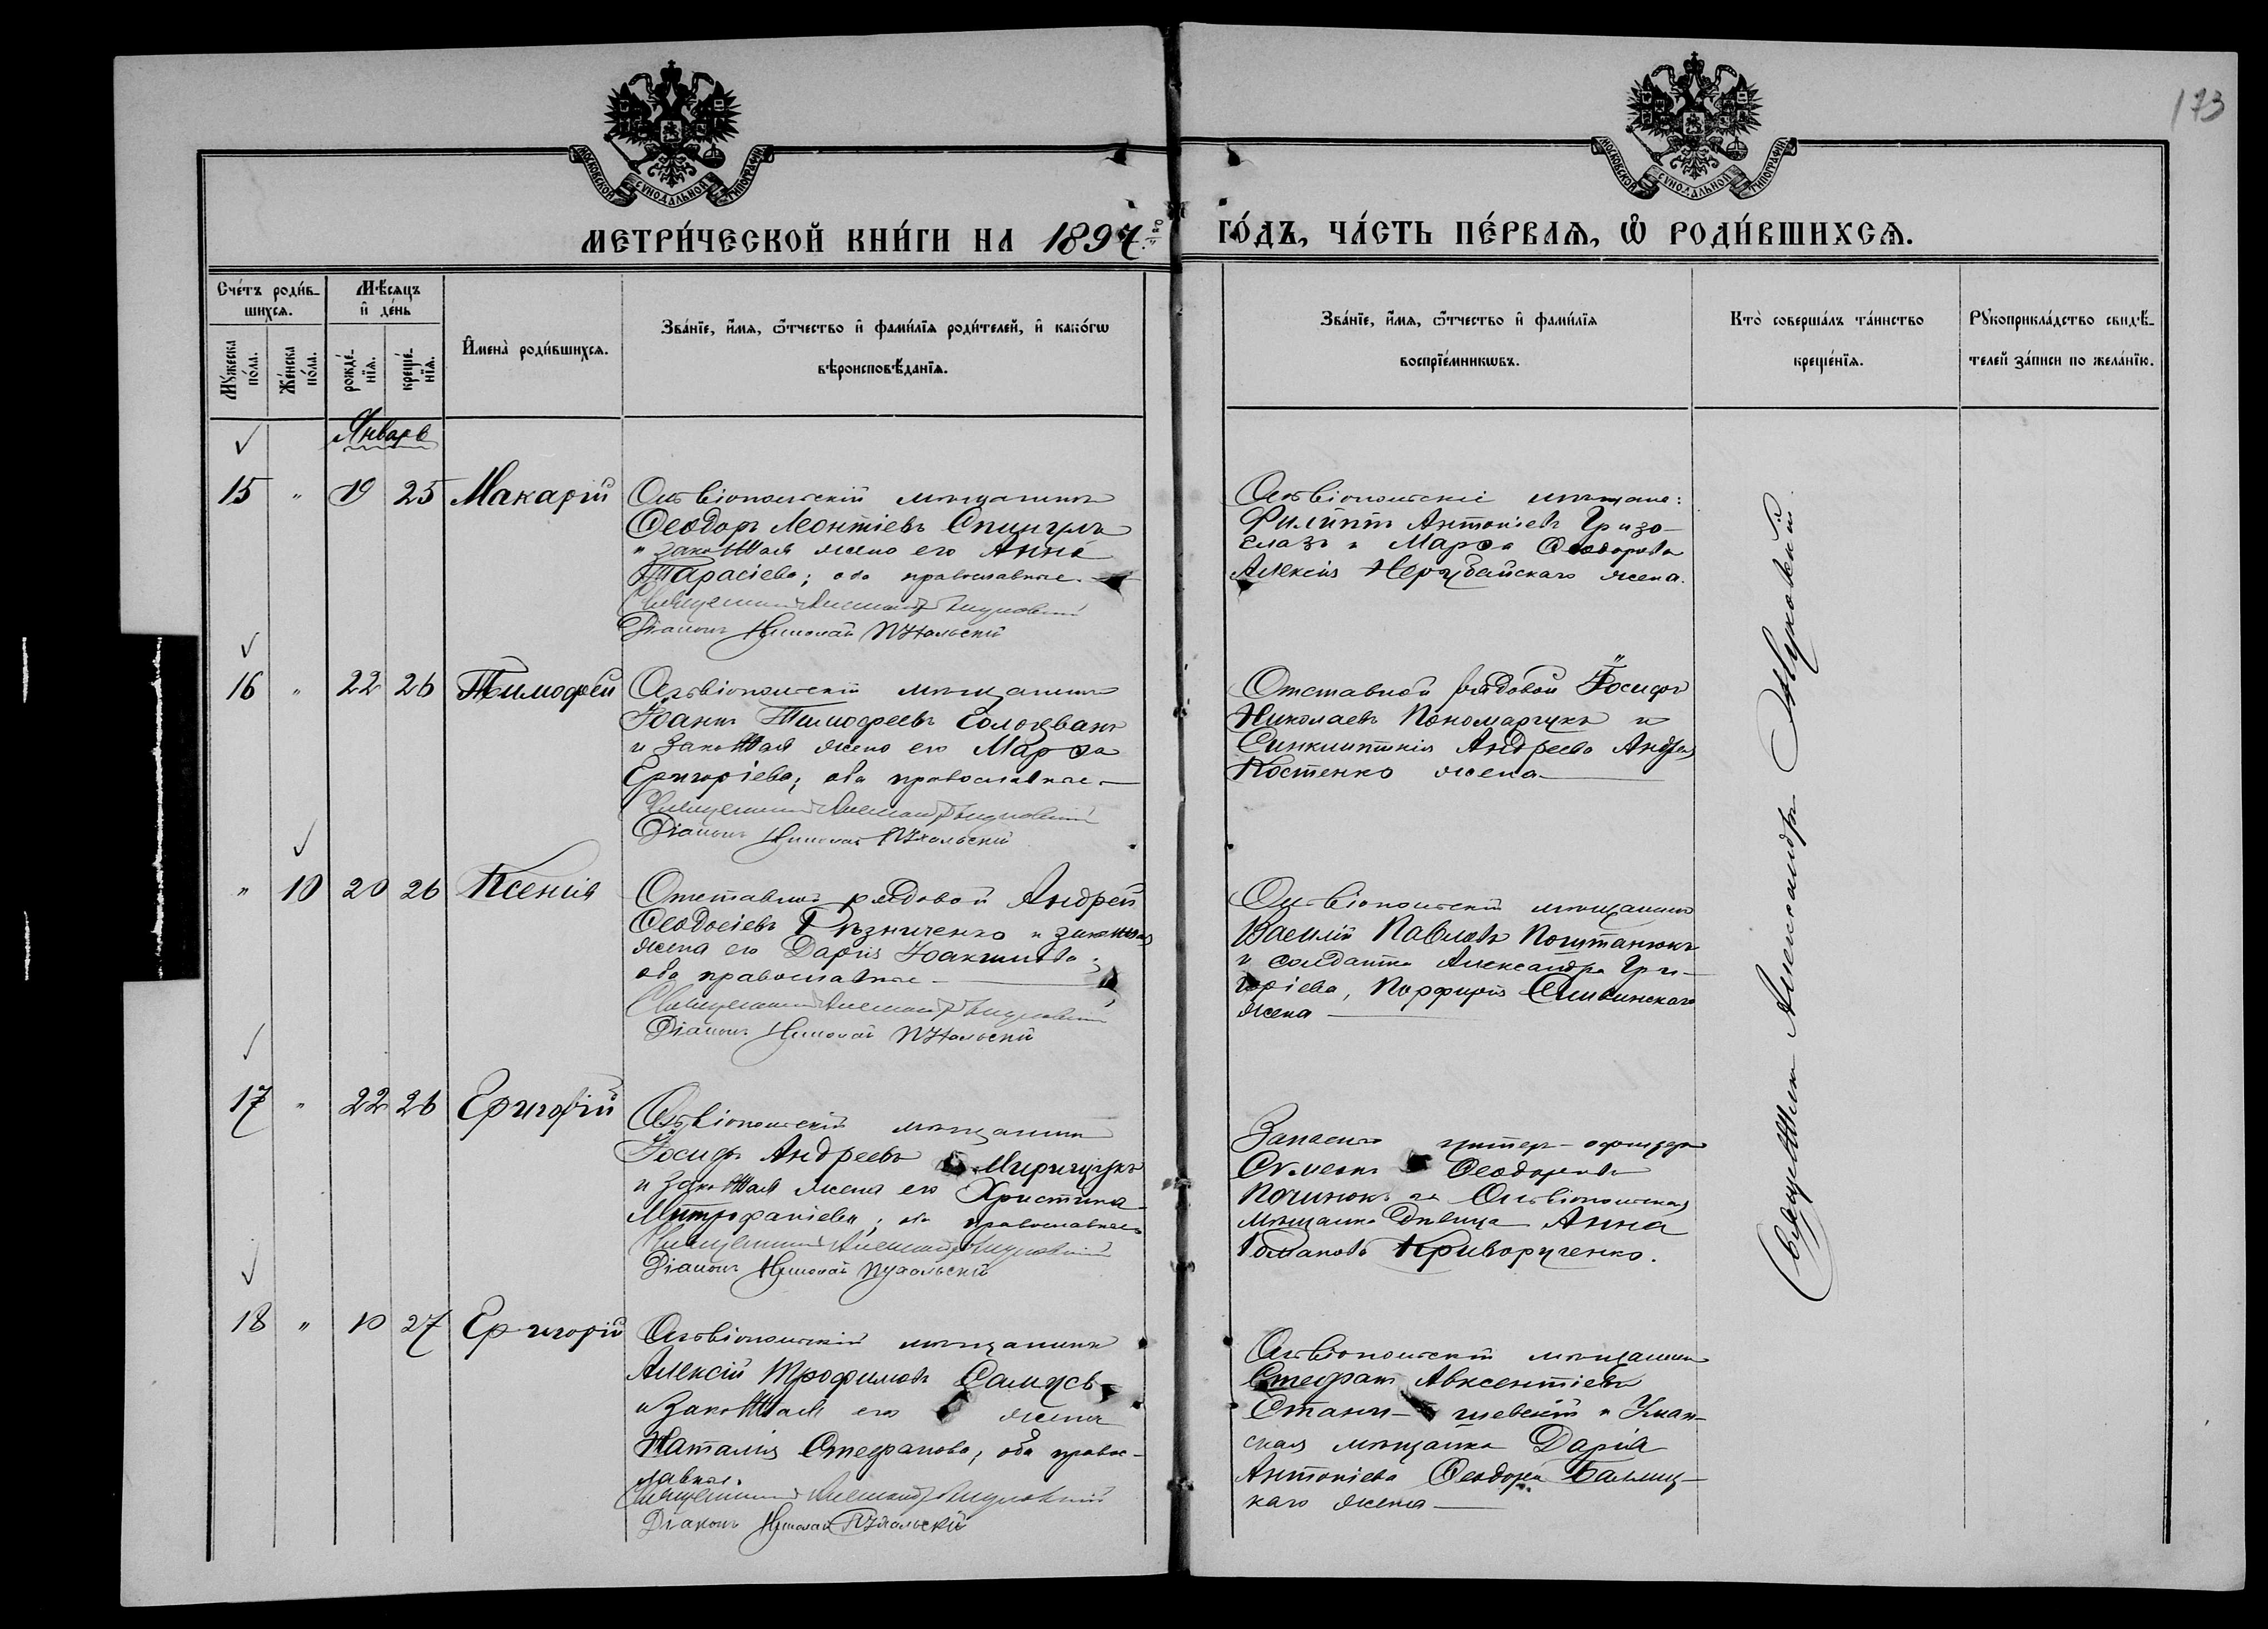 173
МОСКОВСКОЙ СѴНОДАЛЬНОЙ ТИПОГРАФІИ
МОСКОВСКОЙ СѴНОДАЛЬНОЙ ТИПОГРАФІИ
МЕТРИ́ЧЕСКОЙ КНИ́ГИ НА 1897 ГО́ДЪ, ЧА́СТЬ ПЕ́РВАѦ, Ѡ РОДИ́ВШИХСѦ.
Сче́тъ роди́в-
шихсѧ.
Мꙋ́жеска по́ла.
Же́нска по́ла.
Мѣ́сѧцъ
и҆ де́нь
рожде́-
нїѧ.
креще́-
нїѧ.
И҆мена̀ роди́вшихсѧ.
Зва́нїе, и҆́мѧ, ѻ҆́тчество и҆ фами́лїѧ роди́телей, и҆ какѡ́гѡ
вѣроисповѣ́данїѧ.
Зва́нїе, и҆́мѧ, ѻ҆́тчество и҆ фами́лїѧ
воспрїе́мникѡвъ.
Кто̀ соверша́лъ та́инство
креще́нїѧ.
Рꙋкоприкла́дство свидѣ́-
телей за́писи по жела́нїю.
Январь
15 " 19 25 Макарій
Ольвіопольскій мѣщанинъ
Ѳеодоръ Леонтіевъ Спингулъ
и законная жена его Анна
Тарасіева; оба православные.
Священникъ Александръ
Діаконъ Николай Пухальскій
Ольвіопольскіе мѣщане:
Филиппъ Антоніевъ Гризо-
глазъ и Марѳа Ѳеодорова
Алексія Нерубайскаго жена.
16 " 22 26 Тимофей
Ольвіопольскій мѣщанинъ
Іоаннъ ТимофеевъГолованъ
и законная жена его Марѳа
Григоріева; оба православные.
Священникъ Александръ
Діаконъ Николай Пухальскій
Отставной рядовой Іосифъ
Николаевъ Пономарчукъ и
Синклитикія Андреева Андрея
Костенко жена
" 10 20 26 Ксенія
Отставной рядовой Андрей
Ѳеодосіевъ Рѣзниченко и законная
жена его Дарія Іоакимова;
оба православные
Священникъ Александръ
Діаконъ Николай Пухальскій
Ольвіопольскій мѣщанинъ
Василій Павловъ Поштанюкъ
и солдатка Александра Гри-
горіева, Порфирія Сливинскаго
жена
17 " 22 26 Григорій
Ольвіопольскій мѣщанинъ
Іосифъ Андреевъ Миричукъ
и законная жена его Христина
Митрофаніева; оба православные
Священникъ Александръ
Діаконъ Николай Пухальскій
Запасный унтеръ-офицеръ
Симеонъ Ѳеодоровъ
Починокъ и Ольвіопольская
мѣщанка дѣвица Анна
Романова Криворученко.
18 " 10 27 Григорій
Ольвіопольскій мѣщанинъ
Алексій Трофимовъ Самусь
и законная его жена
Наталія Стефанова, оба правос-
лавные.
Священникъ Александръ
Діаконъ Николай Пухальскій
Ольвіопольскій мѣщанинъ
Стефанъ Авксентіевъ
Стани- шевскій и Уман-
ская мѣщанка Дарія
Антоніева Ѳеодора Балиц-
каго жена
Священникъ Александръ